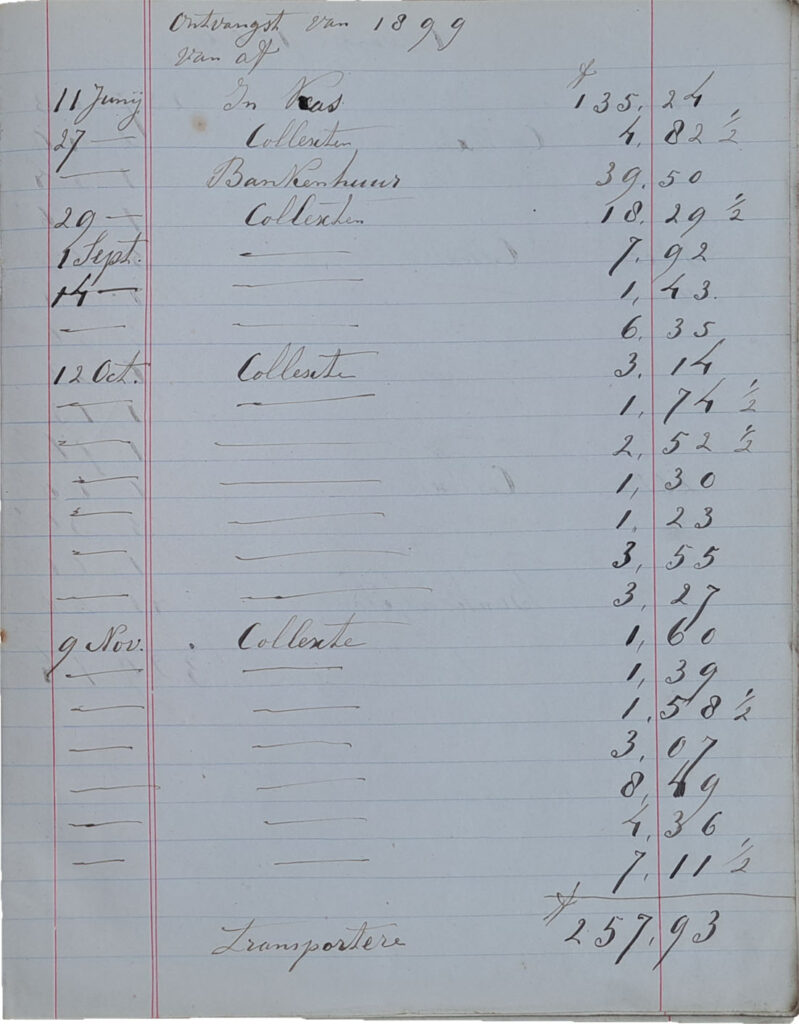 Ontvangst van 1899
van af
11 Junij In Kas ƒ 135,24
27 — Collecten 4,82 ½
— Bankenhuur 39,50
29 — Collecten 18,29 ½
1 Sept. — 7,92
14 — — 1,43.
— — 6,35
12 Oct. Collecte 3,14
— — 1,74 ½
— — 2,52 ½
— — 1,30
— — 1,23
— — 3,55
— — 3,27
9 Nov. Collecte 1,60
— — 1,39
— — 1,58 ½
— — 3,07
— — 8,49
— — 4,36
— — 7,11 ½
Transportere ƒ 257,93